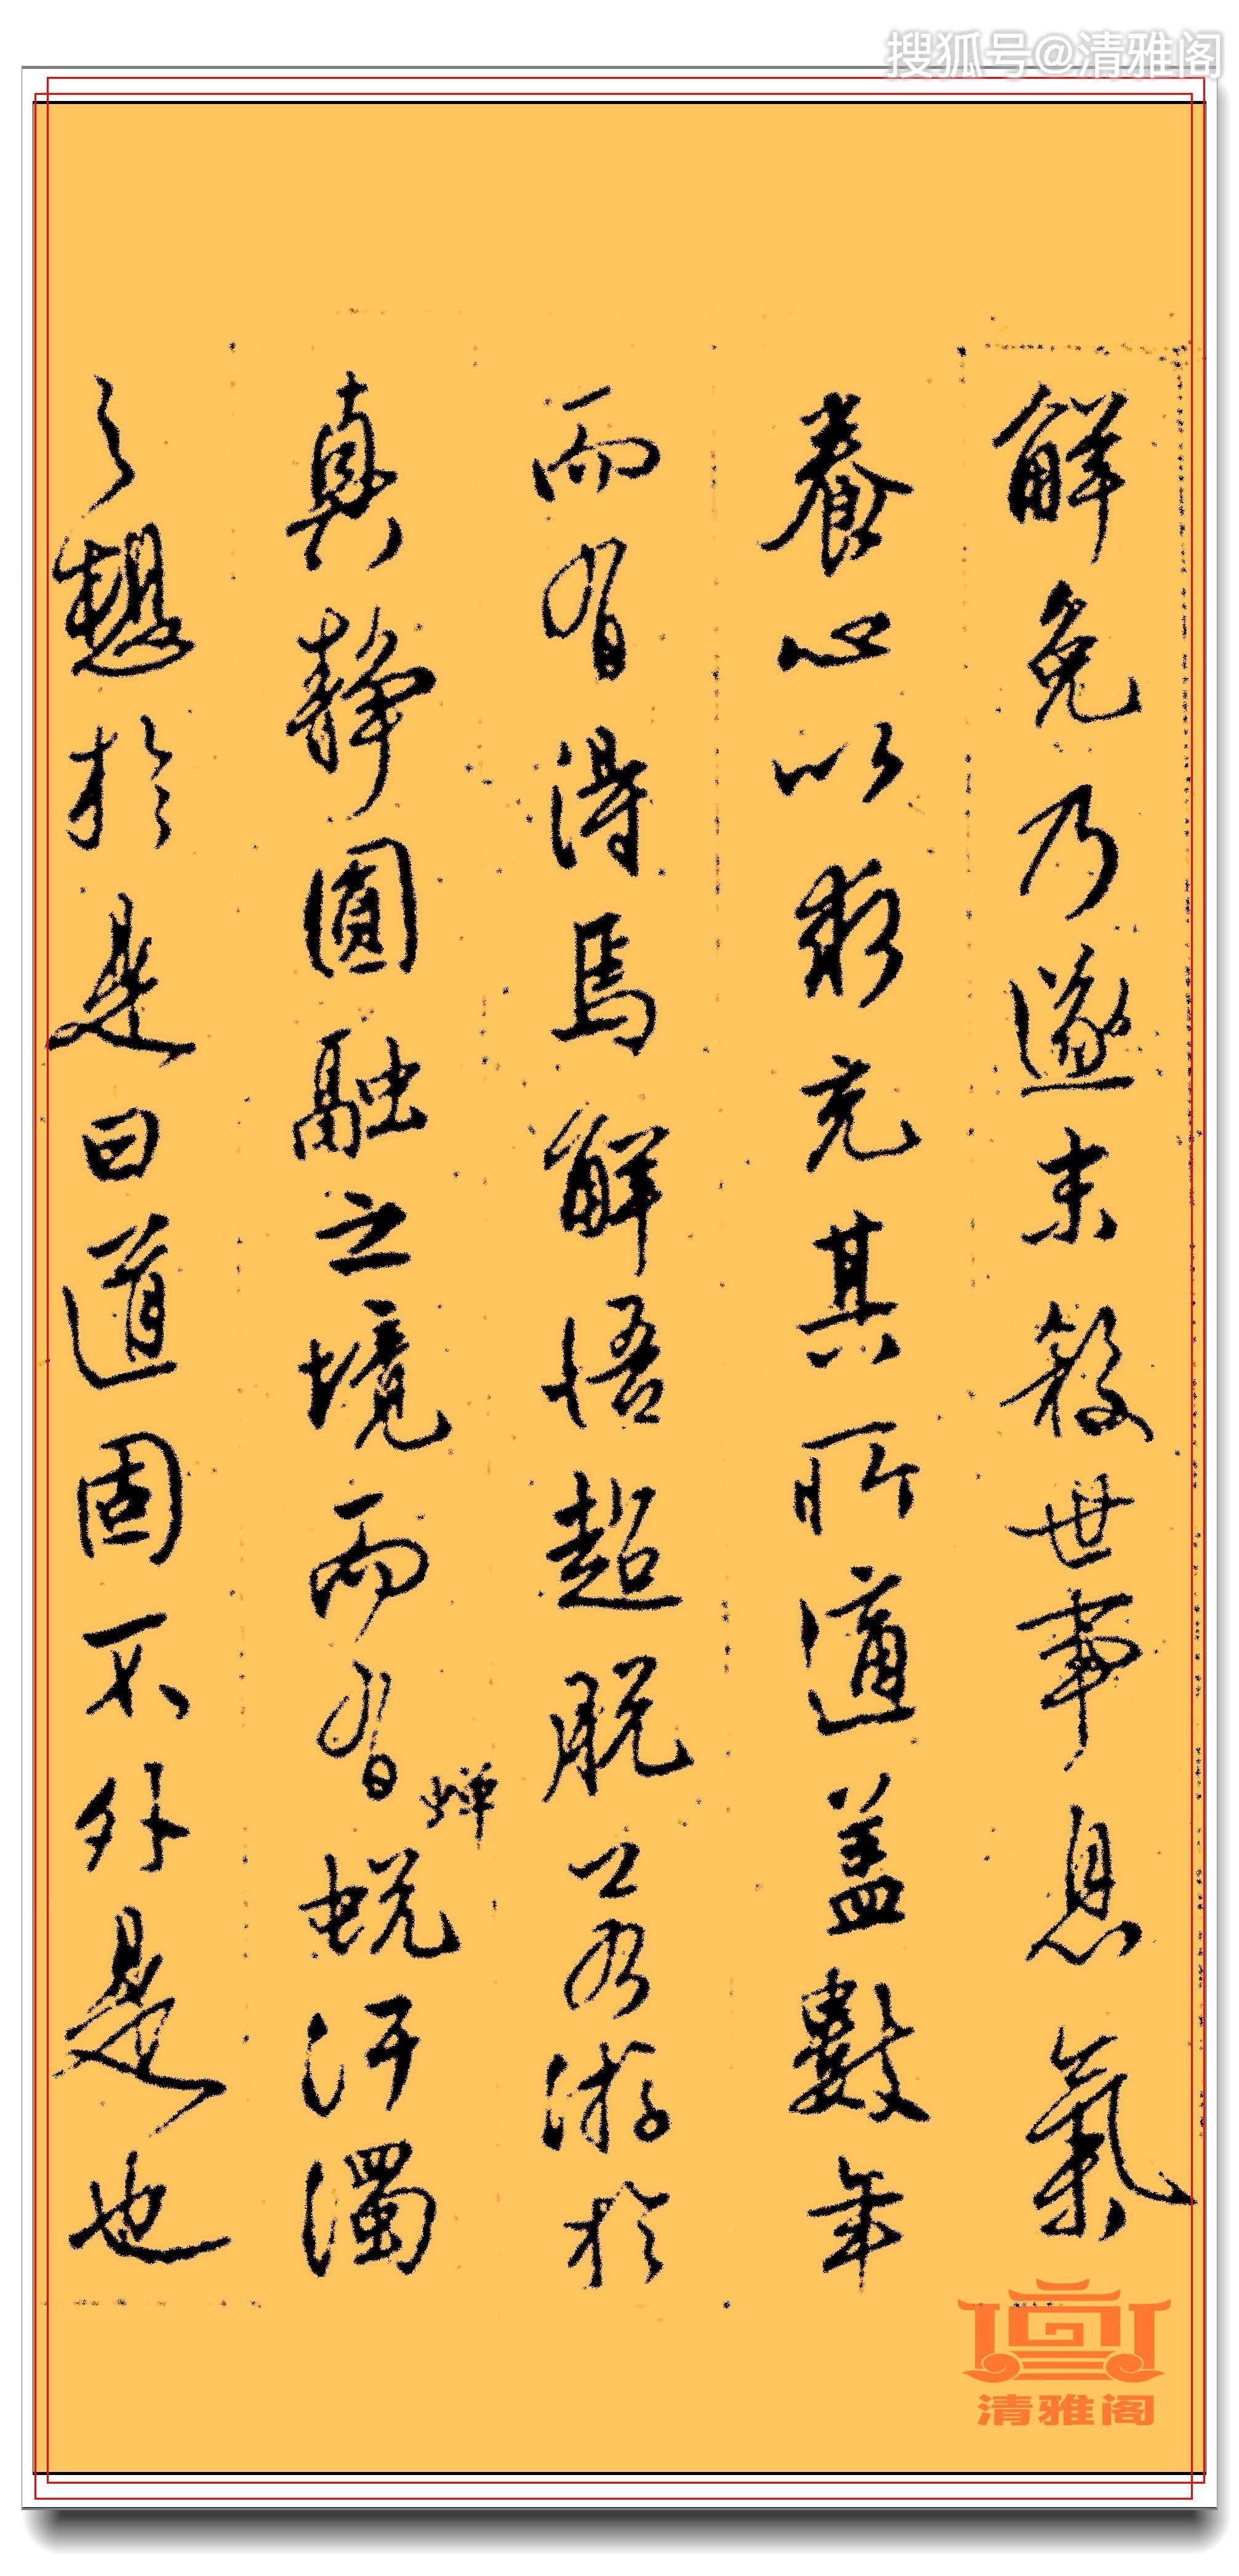 搜狐号@清雅阁
解免乃遂未殺世事息氣
養心以求充其所適蓋數年
而有得焉解悟超脱若游於
真静圓融之境而有蟬蜕汙濁
之想於是曰道固不外是也
清雅阁